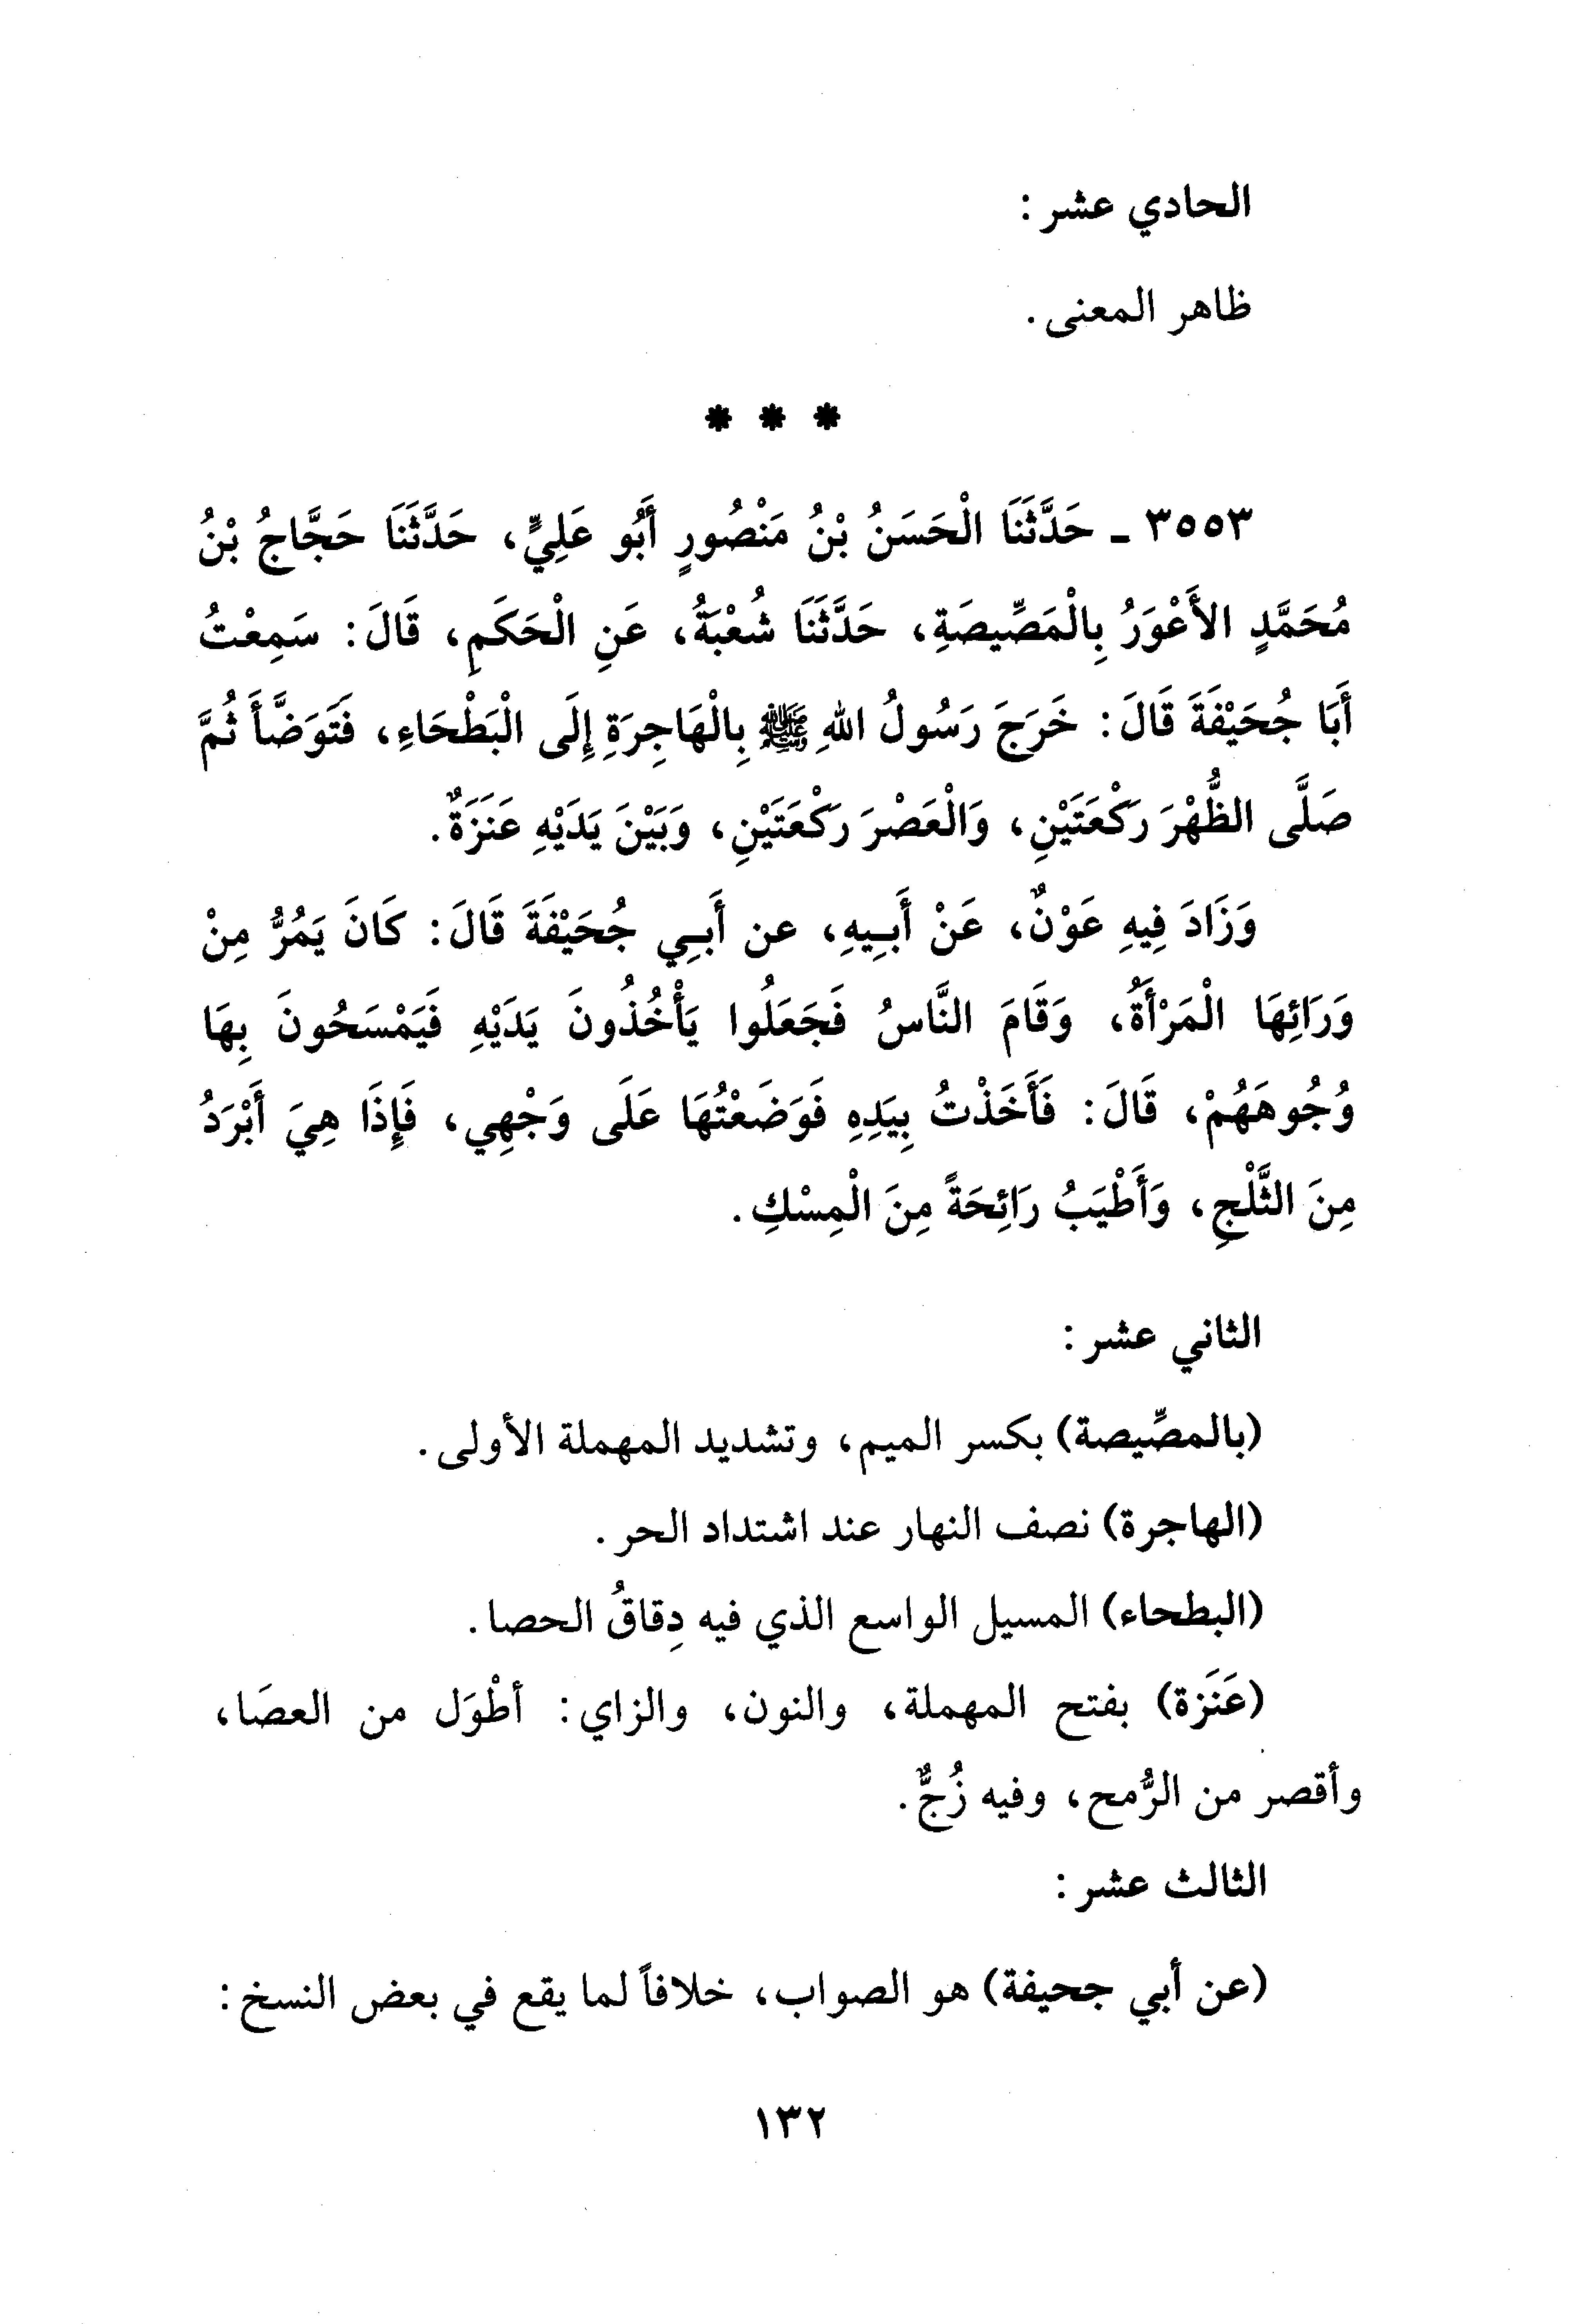 الحادي عشر :
ظاهر المعنى .
* * *
٣٥٥٣ ـ حَدَّثَنَا الْحَسَنُ بْنُ مَنْصُورٍ أَبُو عَلِيٍّ، حَدَّثَنَا حَجَّاجُ بْنُ
مُحَمَّدٍ الأَعْوَرُ بِالْمَصِّيصَةِ، حَدَّثَنَا شُعْبَةُ، عَنِ الْحَكَمِ، قَالَ: سَمِعْتُ
أَبَا جُحَيْفَةَ قَالَ: خَرَجَ رَسُولُ اللهِ ﷺ بِالْهَاجِرَةِ إِلَى الْبَطْحَاءِ، فَتَوَضَّأَ ثُمَّ
صَلَّى الظُّهْرَ رَكْعَتَيْنِ، وَالْعَصْرَ رَكْعَتَيْنِ، وَبَيْنَ يَدَيْهِ عَنَزَةٌ.
وَزَادَ فِيهِ عَوْنٌ، عَنْ أَبِيهِ، عن أَبِي جُحَيْفَةَ قَالَ: كَانَ يَمُرُّ مِنْ
وَرَائِهَا الْمَرْأَةُ، وَقَامَ النَّاسُ فَجَعَلُوا يَأْخُذُونَ يَدَيْهِ فَيَمْسَحُونَ بِهَا
وُجُوهَهُمْ، قَالَ: فَأَخَذْتُ بِيَدِهِ فَوَضَعْتُهَا عَلَى وَجْهِي، فَإِذَا هِيَ أَبْرَدُ
مِنَ الثَّلْجِ، وَأَطْيَبُ رَائِحَةً مِنَ الْمِسْكِ.
الثاني عشر :
(بالمصِّيصة) بكسر الميم، وتشديد المهملة الأولى.
(الهاجرة) نصف النهار عند اشتداد الحر.
(البطحاء) المسيل الواسع الذي فيه دِقاقُ الحصا.
(عَنَزة) بفتح المهملة، والنون، والزاي: أطْوَل من العصَا،
وأقصر من الرُّمح، وفيه زُجٌّ.
الثالث عشر :
(عن أبي جحيفة) هو الصواب، خلافاً لما يقع في بعض النسخ:
١٣٢